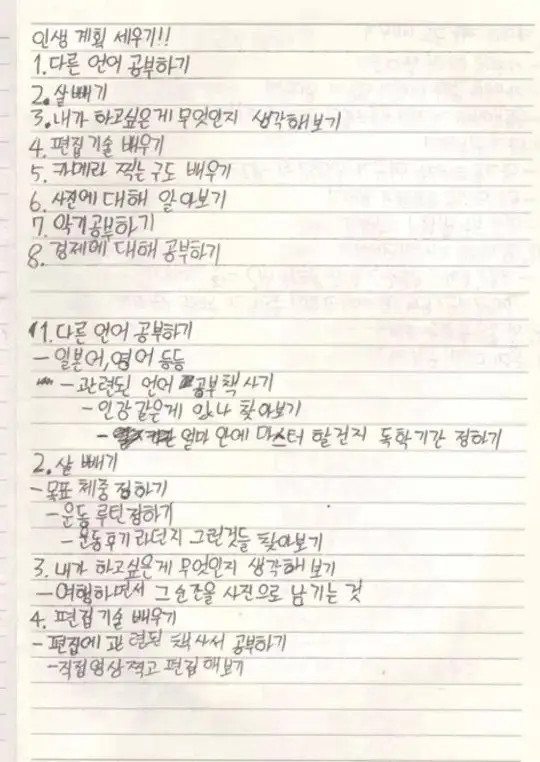 인생 계획 세우기!!
1. 다른 언어 공부하기
2. 살 빼기
3. 내가 하고싶은게 무엇인지 생각해보기
4. 편집 기술 배우기
5. 카메라 찍는 구도 배우기
6. 사진에 대해 알아보기
7. 악기공부하기
8. 경제에 대해 공부하기
1. 다른 언어 공부하기
- 일본어, 영어 등등
- 관련된 언어 공부책 사기
- 인강 같은게 있나 찾아보기
- 얼마 안에 마스터 할건지 독학기간 정하기
2. 살 빼기
- 목표 체중 정하기
- 운동 루틴정하기
- 운동후기라던지 그런것들 찾아보기
3. 내가 하고싶은게 무엇인지 생각해보기
- 여행하면서 그 순간을 사진으로 남기는 것
4. 편집 기술 배우기
- 편집에 관련된 책 사서 공부하기
- 직접영상찍고 편집해보기